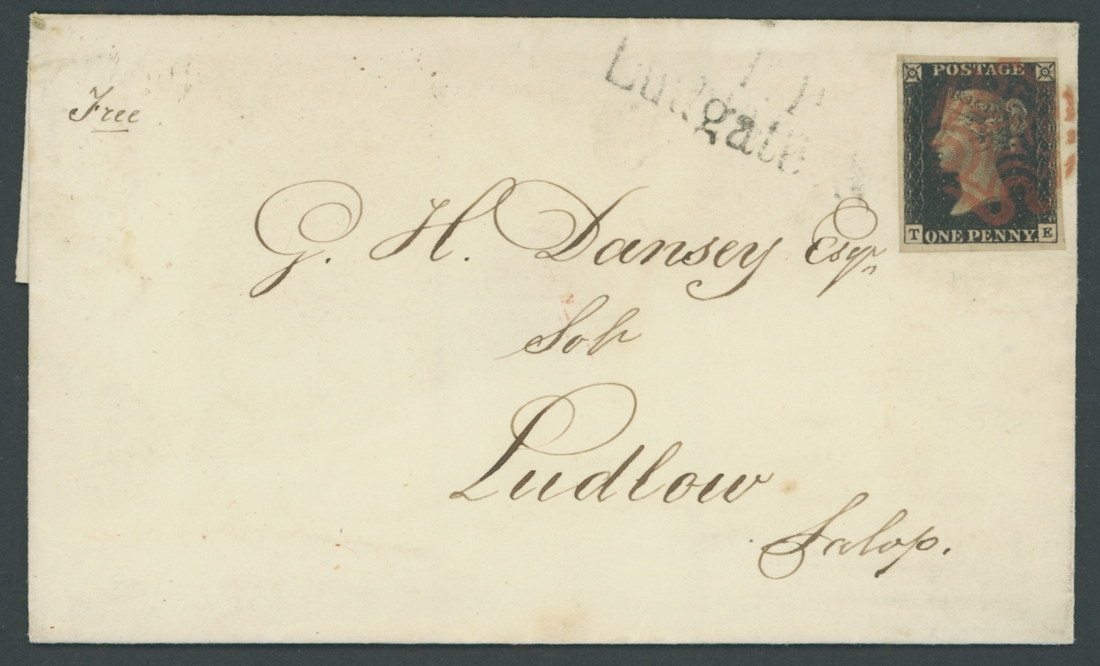 Free
Ludgate
POSTAGE
T ONE PENNY. E
G. H. Dansey Esqr
Solr
Ludlow
Salop.